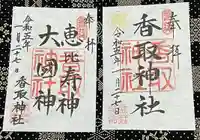 奉拝
恵比寿神
大国神
令和五年
一月二十七日
香取神社
奉拝
香取神社
令和五年一月二十七日